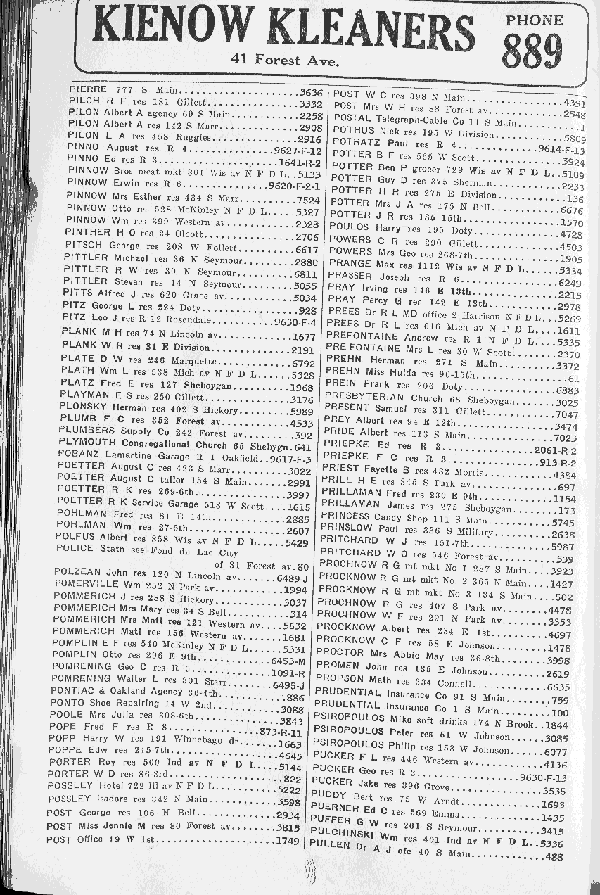 KIENOW KLEANERS
PHONE
889
41 Forest Ave.
PIERRE 777 S Main 3636
PILCH R F res 181 Gillett 3332
PILON Albert A agency 60 S Main 2258
PILON Albert A res 152 S Marr 2908
PILON L A res 355 Ruggles 2916
PINNO August res R 4 9627-F-12
PINNO Ed res R 3 1641-R-2
PINNOW Bros meat mkt 301 Wis av N F D L 5133
PINNOW Erwin res R 6 9620-F-2-1
PINNOW Mrs Esther res 484 S Marr 7524
PINNOW Otto res 528 McKinley N F D L 5327
PINNOW Wm res 390 Western av 2323
PINTHER H O res 84 Olcott 2706
PITSCH George res 208 W Follett 6617
PITTLER Michael res 36 N Seymour 2880
PITTLER R W res 30 N Seymour 6811
PITTLER Steven res 14 N Seymour 5055
PITTS Alfred J res 620 Grove av 5034
PITZ George L res 224 Doty 928
PITZ Leo J res R 12 Rosendale 9650-F-4
PLANK M H res 74 N Lincoln av 1677
PLANK W R res 31 E Division 2191
PLATE D W res 246 Marquette 5792
PLATH Wm L res 658 Mich av N F D L 5328
PLATZ Fred E res 127 Sheboygan 1968
PLAYMAN E S res 250 Gillett 3176
PLONSKY Herman res 402 S Hickory 5989
PLUMB F C res 352 Forest av 4533
PLUMBERS Supply Co 242 Forest av 392
PLYMOUTH Congregational Church 68 Shebygn 641
POBANZ Lamartine Garage R 1 Oakfield 9617-F-3
POETTER August C res 493 S Marr 3022
POETTER August C tailor 154 S Main 2991
POETTER R K res 269-6th 3997
POETTER R K Service Garage 518 W Scott 1615
POHLMAN Fred res 81 E 14th 2885
POHLMAN Wm res 27-5th 2607
POLFUS Albert res 858 Wis av N F D L 5429
POLICE Statn see Fond du Lac City
of 31 Forest av 80
POLZEAN John res 120 N Lincoln av 6489-J
POMERVILLE Wm 252 N Park av 1994
POMMERICH J res 258 S Hickory 5037
POMMERICH Mrs Mary res 34 S Bell 314
POMMERICH Mrs Matl res 121 Western av 5632
POMMERICH Matl res 156 Western av 1681
POMPLIN E F res 540 McKinley N F D L 5331
POMPLIN Otto res 206 E 9th 6453-M
POMRENING Geo C res R 1 1091-R
POMRENING Walter L res 301 Starr 6495-J
PONTIAC & Oakland Agency 30-4th 886
PONTO Shoe Repairing 14 W 2nd 3088
POOLE Mrs Julia res 208-6th 3843
POPE Fred F res R 8 873-R-11
POPP Harry W res 191 Winnebago dr 1663
POPPE Edw res 215 7th 4545
PORTER Roy res 500 Ind av N F D L 5144
PORTER W D res 86 3rd 802
POSSLEY Hotel 722 Ill av N F D L 5222
POSSLEY Isadore res 342 N Main 3598
POST George res 106 N Bell 2934
POST Miss Jennie M res 80 Forest av 3815
POST Office 19 W 1st 1749
POST W C res 398 N Main 4381
POST Mrs W H res 58 Forest av 2548
POSTAL Telegraph-Cable Co 11 S Main 1
POTHUS Nick res 195 W Division 5809
POTRATZ Paul res R 4 9614-F-13
POTTER B F res 566 W Scott 3924
POTTER Ben P grocer 729 Wis av N F D L 5109
POTTER Guy D res 375 Sherman 2233
POTTER H R res 275 E Division 136
POTTER Mrs J A res 175 N Bell 6676
POTTER J R res 136 16th 1570
POULOS Harry res 195 Doty 4728
POWERS C R res 390 Gillett 4503
POWERS Mrs Geo res 268-7th 1905
PRANGE Max res 1112 Wis av N F D L 5334
PRASSER Joseph res R 6 6249
PRAY Irving res 148 E 13th 2215
PRAY Percy G res 142 E 12th 2978
PREES Dr R L MD office 2 Harrison N F D L 5269
PREES Dr R L res 616 Mich av N F D L 1611
PREFONTAINE Andrew res R 1 N F D L 5335
PREFONTAINE Mrs L res 30 W Scott 2370
PREHN Herman res 271 S Main 3372
PREHN Miss Hulda res 90-17th 61
PREIN Frank res 206 Doty 6883
PRESBYTERIAN Church 68 Sheboygan 3025
PRESENT Samuel res 311 Gillett 7047
PREY Albert res 94 E 12th 3474
PRIDE Albert res 113 S Main 7023
PRIEPKE Ed res R 2 2061-R-2
PRIEPKE F C res R 3 913-R-2
PRIEST Fayette S res 432 Morris 4384
PRILL H E res 346 S Park av 697
PRILLAMAN Fred res 235 E 9th 1184
PRILLAVAN James res 275 Sheboygan 173
PRINCESS Candy Shop 111 S Main 5745
PRINSLOW Paul res 236 S Military 2638
PRITCHARD W J res 151-7th 5987
PRITCHARD W O res 546 Forest av 509
PROCHNOW R G mt mkt No 1 257 S Main 3923
PROCKNOW R G mt mkt No 2 365 N Main 1427
PROCKNOW R G mt mkt No 3 134 S Main 502
PROCHNOW R G res 407 S Park av 4478
PRUCHNOW W F res 221 N Park av 3353
PROCKNOW Albert res 234 E 1st 4697
PROCKNOW C F res 68 E Johnson 1478
PROCTOR Mrs Abbie May res 36-8th 3998
PROMEN John res 136 E Johnson 2619
PROPSON Math res 234 Connell 6635
PRUDENTIAL Insurance Co 91 S Main 759
PRUDENTIAL Insurance Co 1 S Main 100
PSIROPOULOS Mike soft drinks 174 N Brook 1844
PSIROPOULOS Peter res 61 W Johnson 3085
PSIROPOULOS Philip res 153 W Johnson 6077
PUCKER F L res 446 Western av 4136
PUCKER Geo res R 2 9630-F-13
PUCKER Jake res 396 Grove 3535
PUDDY Bert res 75 W Arndt 1693
PUERNER Ed C res 569 Emma 1435
PUFFER G W res 201 S Seymour 3415
PULCHINSKI Wm res 401 Ind av N F D L 5336
PULLEN Dr A J ofc 40 S Main 488